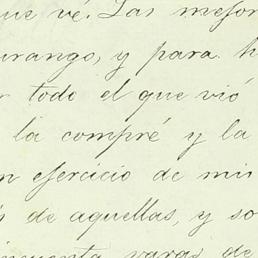 que vé. Las mejor
urango, y para h
r todo el que vió
la compré y la
n ejercicio de mis
s de aquellas, y so
incuenta varas de